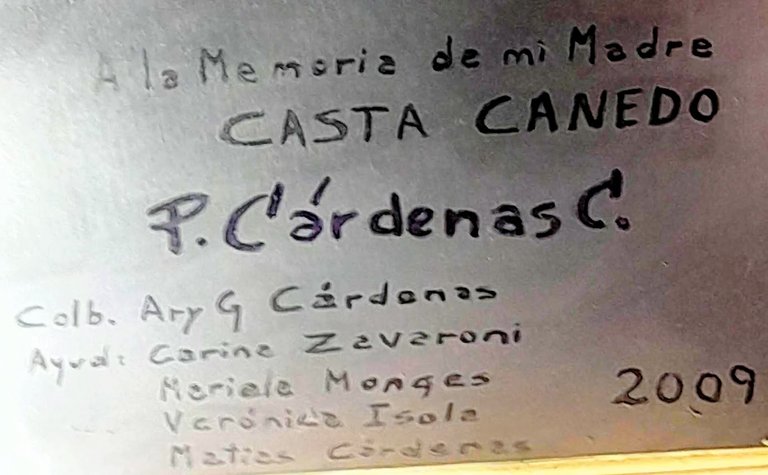 A la Memoria de mi Madre
CASTA CANEDO
P. Cárdenas C.
Colb. Ary G Cárdenas
Ayud: Carina Zavaroni
Mariela Monges
Verónica Isola
Matias Cárdenas
2009